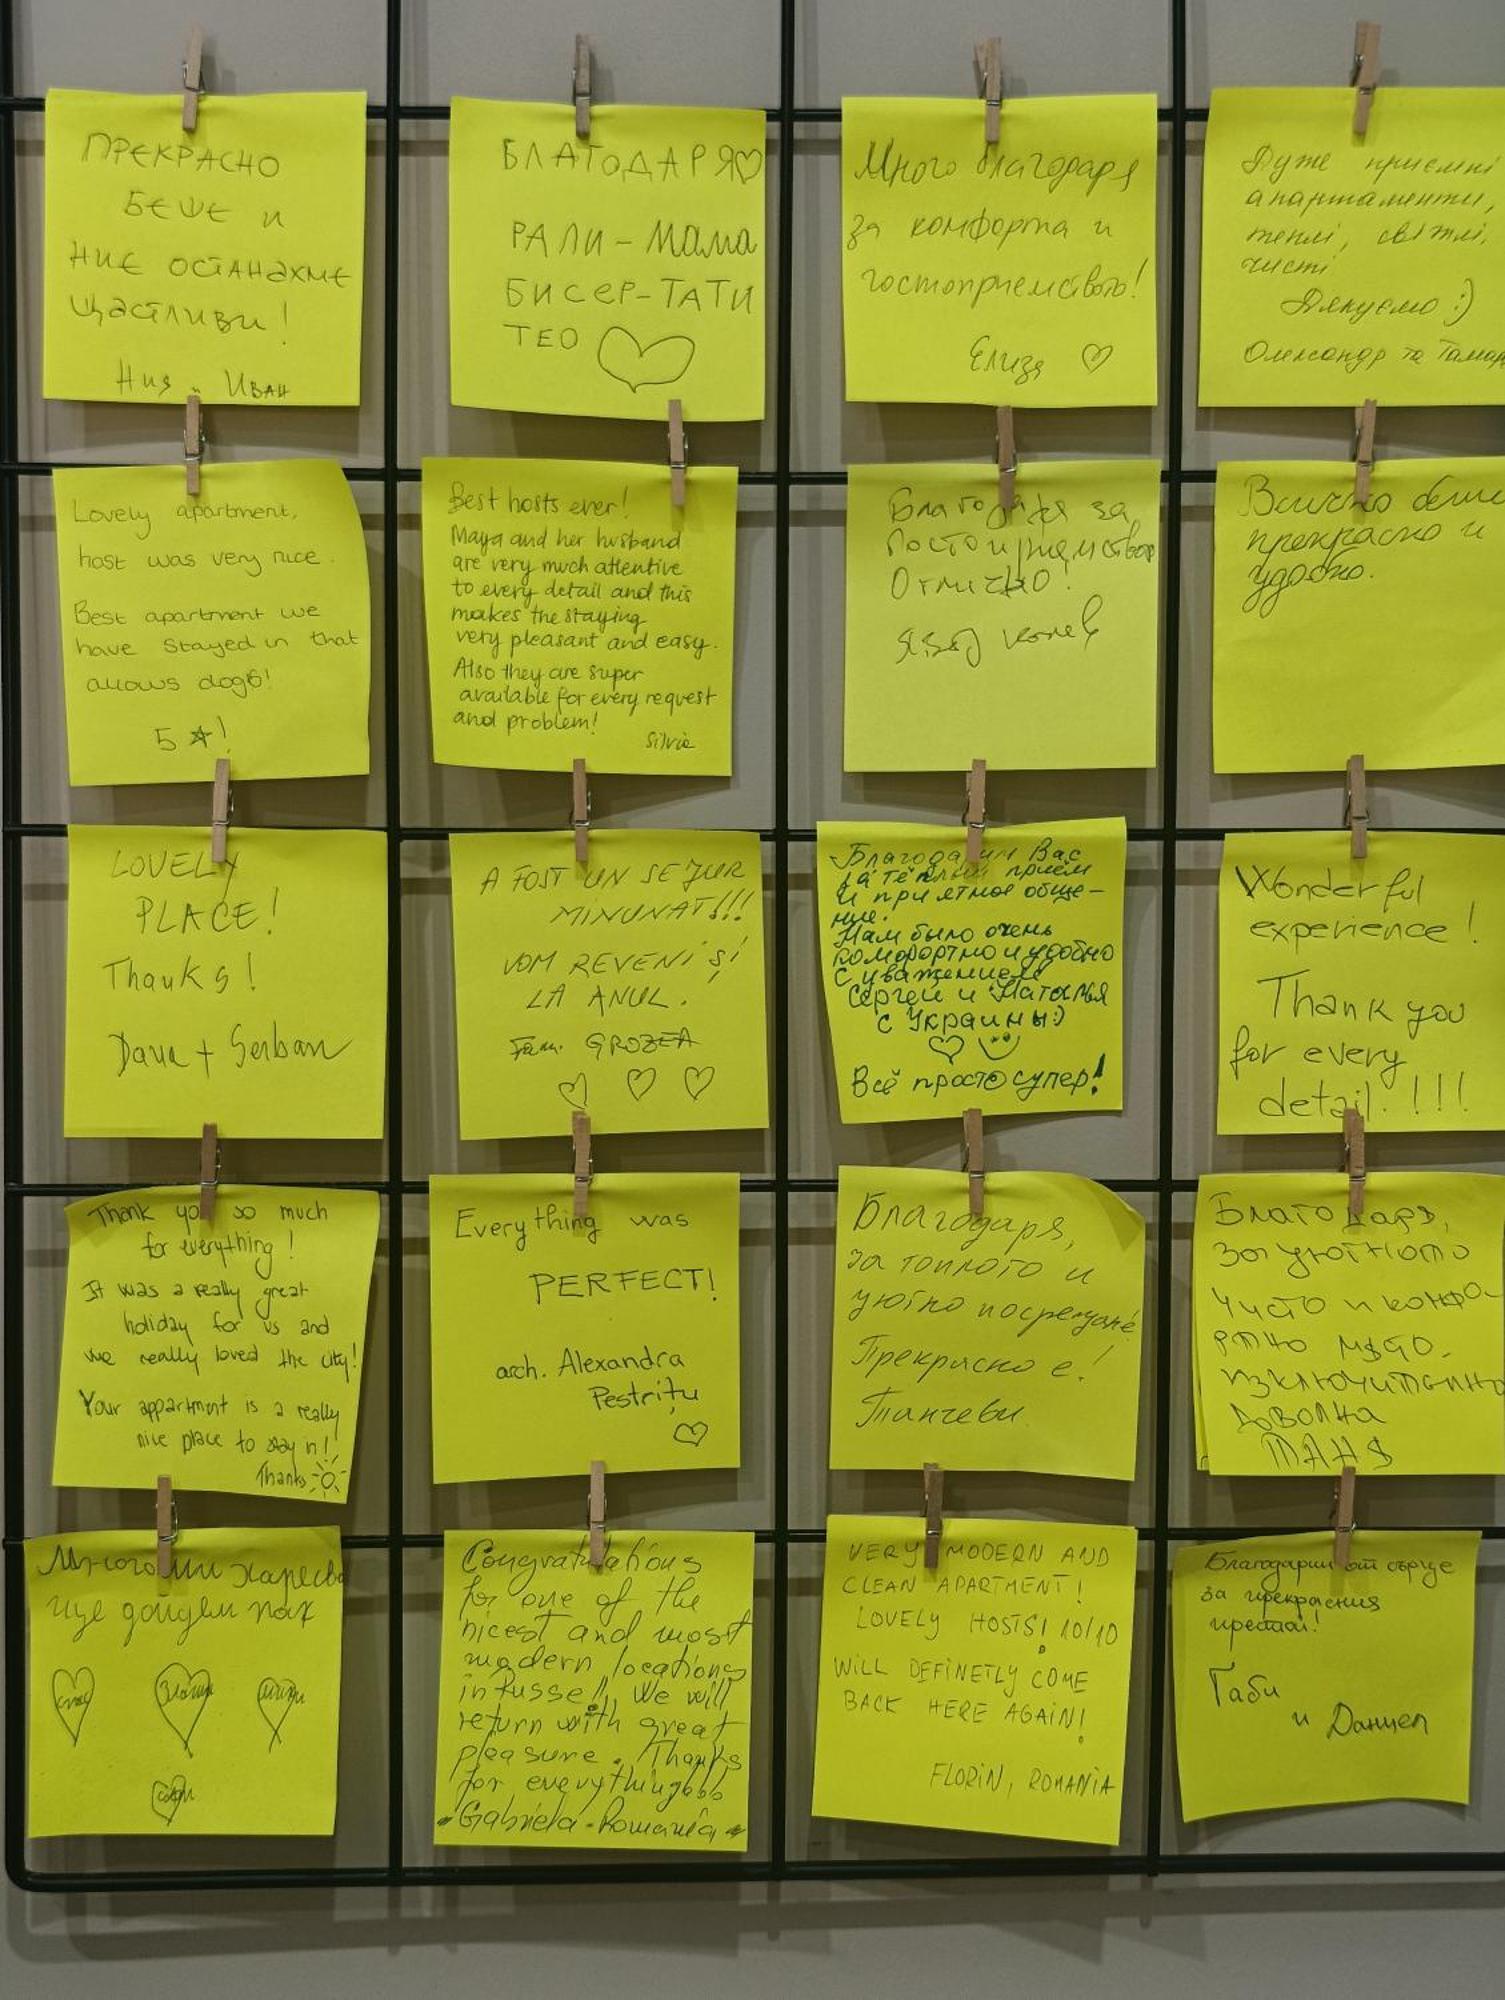 ПРЕКРАСНО
БЕШЕ И
НИЕ ОСТАНАХМЕ
ЩАСТЛИВИ!
Ния и Иван
БЛАГОДАРЯ♡
РАЛИ-мама
БИСЕР-ТАТИ
ТЕО ♡
Много благодаря
за комфорта и
гостоприемството!
Елиза ♡
Дуже приємні
апартаменти,
теплі, світлі,
чисті
Дякуємо :)
Олександр та
Lovely apartment,
host was very nice.
Best apartment we
have stayed in that
allows dogs!
5 ☆!
Best hosts ever!
Maya and her husband
are very much attentive
to every detail and this
makes the staying
very pleasant and easy.
Also they are super
available for every request
and problem!
Silvia
Благодаря за
Отлично!
Всичко беше
прекрасно и
удобно.
LOVELY
PLACE!
Thanks!
Dana + Serban
A FOST UN SEJUR
MINUNAT!!!
VOM REVENI ȘI
LA ANUL.
Fam. GROZEA
♡ ♡ ♡
Благодарим Вас
за тёплый приём
и приятное обще-
ние.
Нам было очень
комфортно и удобно
С уважением
Сергей и Наталья
с Украины:)
♡
Всё просто супер!
Wonderful
experience!
Thank you
for every
detail!!!
Thank you so much
for everything!
It was a really great
holiday for us and
we really loved the city!
Your appartment is a really
nice place to stay in!
Thanks
Everything was
PERFECT!
arch. Alexandra
Pestrițu
♡
Благодаря,
за топлото и
уютно посрещане!
Прекрасно е!
Танчеви
БЛАГОДАРЯ,
за уютното
чисто и комфо-
ртно място.
изключително
доволна
ТАНЯ
Много ми хареса
ще дойдем пак
Congratulations
for one of the
nicest and most
modern locations
in Russe!! We will
return with great
pleasure. Thanks
for everything
Gabriela - Romania
VERY MODERN AND
CLEAN APARTMENT!
LOVELY HOSTS! 10/10
WILL DEFINETLY COME
BACK HERE AGAIN!
FLORIN, ROMANIA
Благодарим от сърце
за прекрасния
престой!
Габи
и Даниел